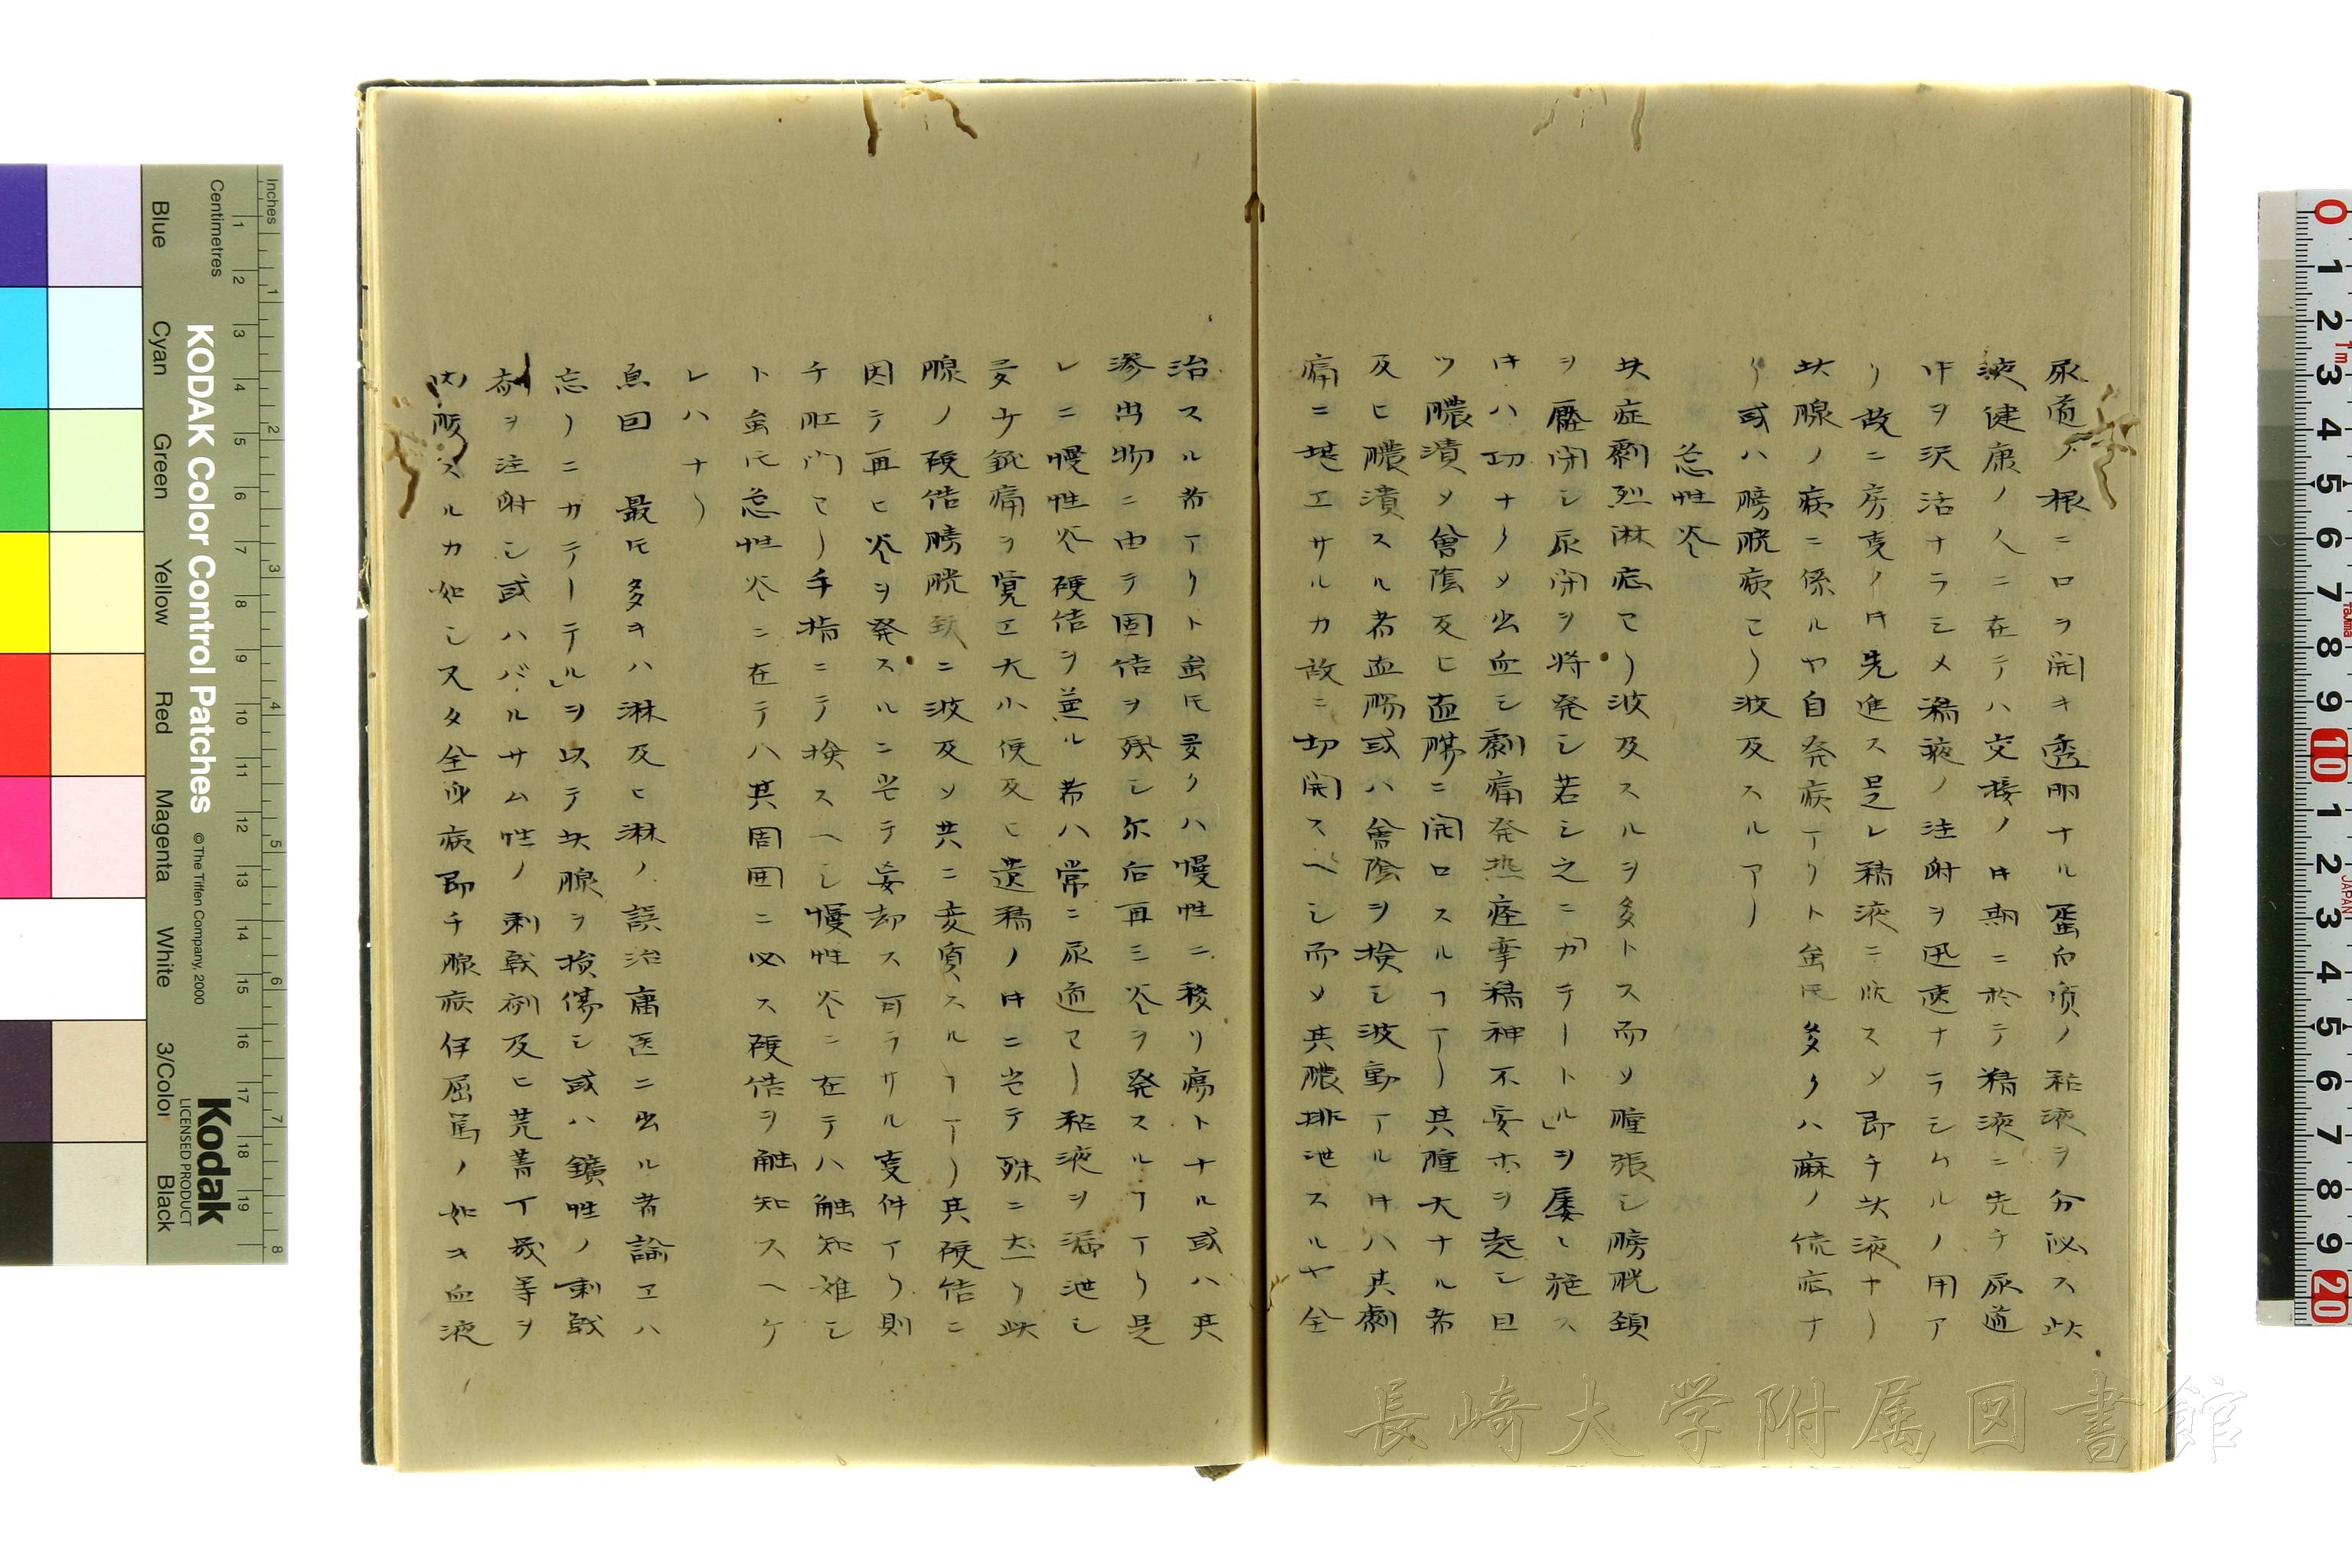 尿道ノ根ニ口ヲ開キ透明ナル蛋白質ノ粘液ヲ分泌ス此
液健康ノ人ニ在テハ交接ノ時期ニ於テ精液ニ先チ尿道
ヲ沢活ナラシメ精液ノ注射ヲ迅速ナラシムルノ用ア
リ故ニ房事ノ時先進ス是レ精液ニ ス 即チ此液ナリ
此腺ノ病ニ係ルヤ自発病アリト雖モ多クハ麻ノ 症ナ
リ或ハ膀胱病ヨリ波及スルアリ
急性炎
此症劇烈淋症ヨリ波及スルヲ多トス而シ腫張シ膀胱頚
ヲ壓閉シ尿閉ヲ将発シ若シ之ニ「カテートル」ヲ屡々施ス
時ハ切ナリ 出血シ劇痛発熱痙挛精神不安ホヲ起シ且
ツ膿潰 會陰及ヒ直腸ニ開口スルヿアリ其腫大ナル者
及ヒ膿潰スル者直腸或ハ會陰ヲ検シ波動アル時ハ其劇
痛ニ堪エサルカ故ニ切開スヘシ而 其膿排泄スルヤ全
治スル者アリト雖モ多クハ慢性ニ移リ瘍トナル或ハ其
滲出物ニ由テ固結ヲ残シ尓后再三炎ヲ発スルヿアリ是
レニ慢性炎硬結ヲ兼ル者ハ常ニ尿道ヨリ粘液ヲ漏泄シ
多少鈍痛ヲ覚エ大小便及ヒ遺精ノ時ニ当テ殊ニ リ此
腺ノ硬結膀胱頚ニ波及 共ニ変質スルヿアリ其硬結ニ
因テ再ヒ炎ヲ発スルニ当テ妄却ス可ラサル変件アリ則
チ肛門ヨリ手指ニテ検スヘシ慢性炎ニ在テハ触知難シ
ト雖モ急性炎ニ在テハ其周囲ニ必ス硬結ヲ触知スヘケ
レハナリ
原因 最モ多キハ淋及ヒ淋ノ誤治庸医ニ出ル者論エハ
忘リニカテーテル」ヲ以テ此腺ヲ損傷シ或ハ鑛性ノ刺戟
剤ヲ注射シ或ハバルサム性ノ刺戟剤及ヒ芫菁丁幾等ヲ
内服スルカ如シ又タ全身病即チ腺病伊屈篤ノ如キ血液
長崎大学附属図書館
Inches
Centimetres
KODAK Color Control Patches
© The Tiffen Company, 2000
Kodak
LICENSED PRODUCT
Blue
Cyan
Green
Yellow
Red
Magenta
White
3/Color
Black
JAPAN